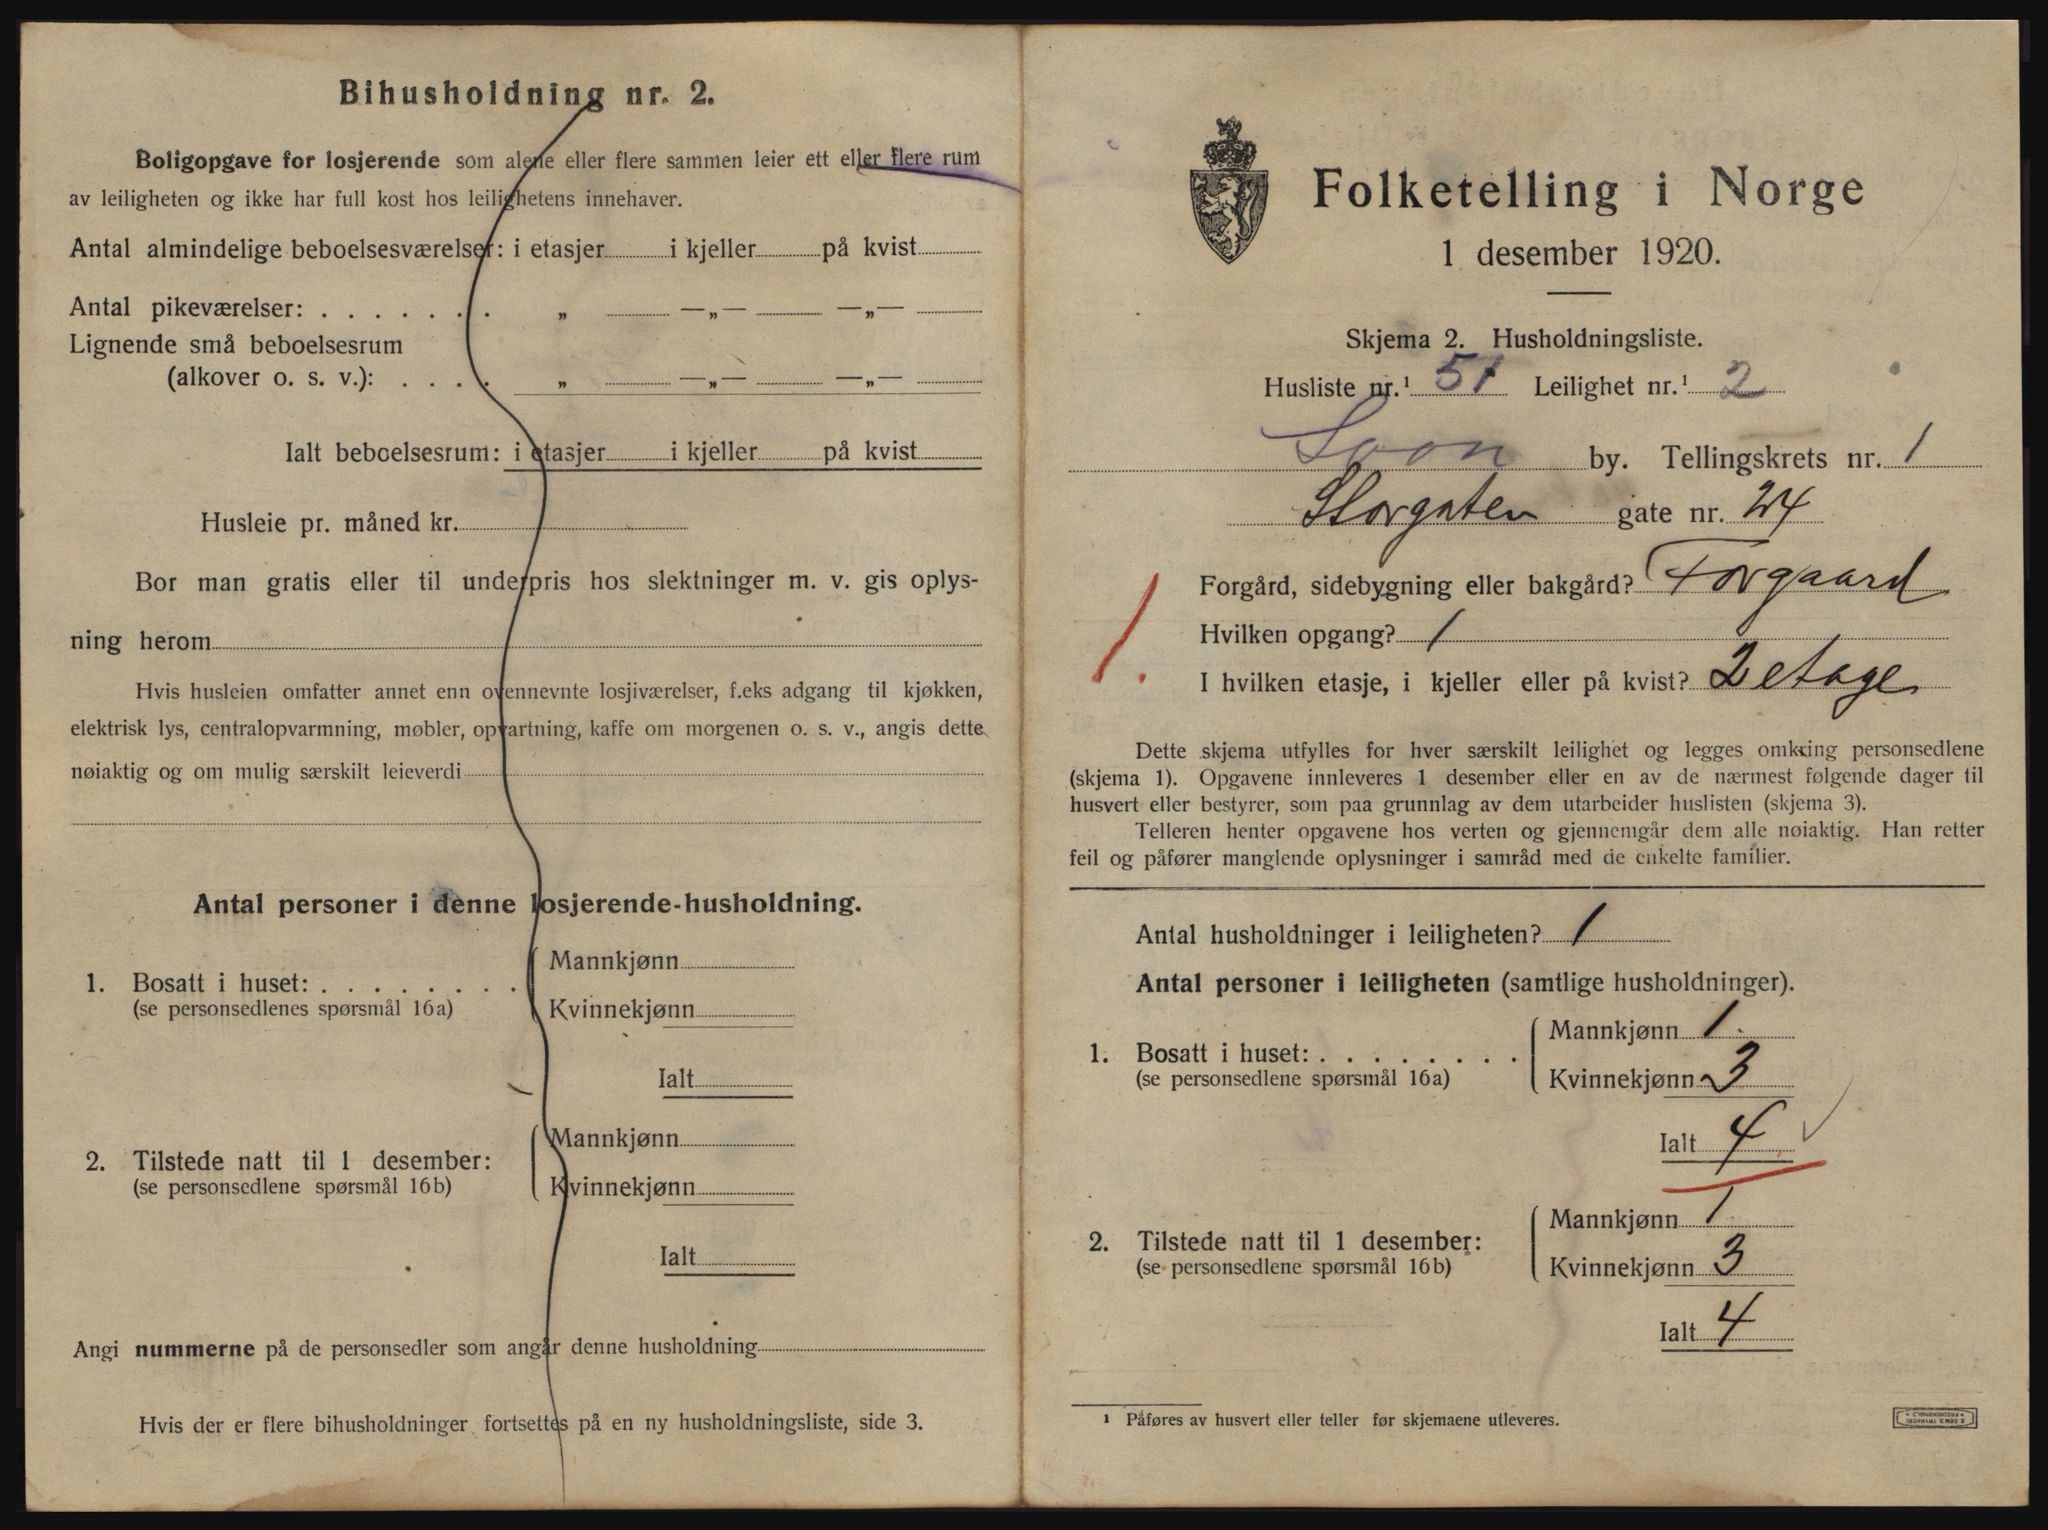 Bihusholdning nr. 2.
Boligopgave for losjerende som alene eller flere sammen leier ett eller flere rum
av leiligheten og ikke har full kost hos leilighetens innehaver.
Antal almindelige beboelsesværelser: i etasjer i kjeller på kvist
Antal pikeværelser: . . . . . . . „ —„— —„—
Lignende små beboelsesrum
(alkover o. s. v.): . . . . „ —„— —„—
Ialt beboelsesrum: i etasjer i kjeller på kvist
Husleie pr. måned kr.
Bor man gratis eller til underpris hos slektninger m. v. gis oplys-
ning herom
Hvis husleien omfatter annet enn ovennevnte losjiværelser, f.eks adgang til kjøkken,
elektrisk lys, centralopvarmning, møbler, opvartning, kaffe om morgenen o. s. v., angis dette
nøiaktig og om mulig særskilt leieverdi
Antal personer i denne losjerende-husholdning.
1. Bosatt i huset: . . . . . . . .
(se personsedlenes spørsmål 16a)
Mannkjønn
Kvinnekjønn
Ialt
2. Tilstede natt til 1 desember:
(se personsedlene spørsmål 16b)
Mannkjønn
Kvinnekjønn
Ialt
Angi nummerne på de personsedler som angår denne husholdning
Hvis der er flere bihusholdninger fortsettes på en ny husholdningsliste, side 3.
Folketelling i Norge
1 desember 1920.
Skjema 2. Husholdningsliste.
Husliste nr.¹ 51 Leilighet nr.¹ 2
Soon by. Tellingskrets nr. 1
Storgaten gate nr. 24
1.
Forgård, sidebygning eller bakgård? Forgaard
Hvilken opgang? 1
I hvilken etasje, i kjeller eller på kvist? 2 etage
Dette skjema utfylles for hver særskilt leilighet og legges omkring personsedlene
(skjema 1). Opgavene innleveres 1 desember eller en av de nærmest følgende dager til
husvert eller bestyrer, som paa grunnlag av dem utarbeider huslisten (skjema 3).
Telleren henter opgavene hos verten og gjennemgår dem alle nøiaktig. Han retter
feil og påfører manglende oplysninger i samråd med de enkelte familier.
Antal husholdninger i leiligheten? 1
Antal personer i leiligheten (samtlige husholdninger).
1. Bosatt i huset: . . . . . . . .
(se personsedlene spørsmål 16a)
Mannkjønn 1.
Kvinnekjønn 3
Ialt 4
2. Tilstede natt til 1 desember:
(se personsedlene spørsmål 16b)
Mannkjønn 1
Kvinnekjønn 3
Ialt 4
¹ Påføres av husvert eller teller før skjemaene utleveres.